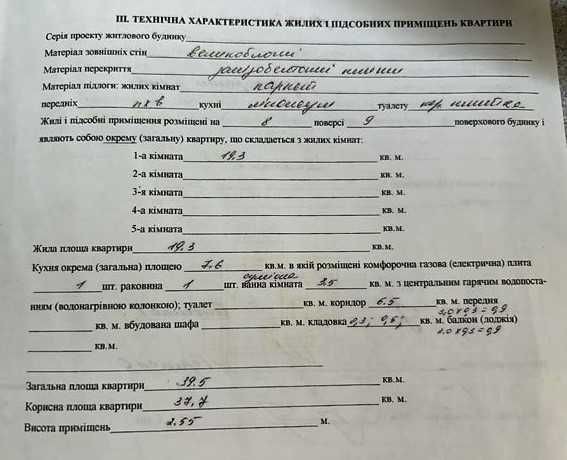 III. ТЕХНІЧНА ХАРАКТЕРИСТИКА ЖИЛИХ І ПІДСОБНИХ ПРИМІЩЕНЬ КВАРТИРИ
Серія проекту житлового будинку
Матеріал зовнішніх стін великоблочні
Матеріал перекриття залізобетонні плити
Матеріал підлоги: жилих кімнат паркет
передніх пхв кухні лінолеум туалету кер. плитка
Жилі і підсобні приміщення розміщені на 8 поверсі 9 поверхового будинку і
являють собою окрему (загальну) квартиру, що складається з жилих кімнат:
1-а кімната 19,3 кв. м.
2-а кімната кв. м.
3-я кімната кв. м.
4-а кімната кв. м.
5-а кімната кв.м.
Жила площа квартири 19.3 кв.м.
Кухня окрема (загальна) площею 7.6 кв.м. в якій розміщені комфорочна газова (електрична) плита
суміщена
1 шт. раковина 1 шт. ванна кімната 3.5 кв. м. з центральним гарячим водопоста-
нням (водонагрівною колонкою); туалет кв. м. коридор 6.5 кв. м. передня
3,0 x 0,3 = 0,9
кв. м. вбудована шафа кв. м. кладовка 0,3; 0,6; кв. м. балкон (лоджія)
кв.м.
Загальна площа квартири 39.5 кв.м.
Корисна площа квартири 37,7 кв. м.
Висота приміщень 2.55 м.